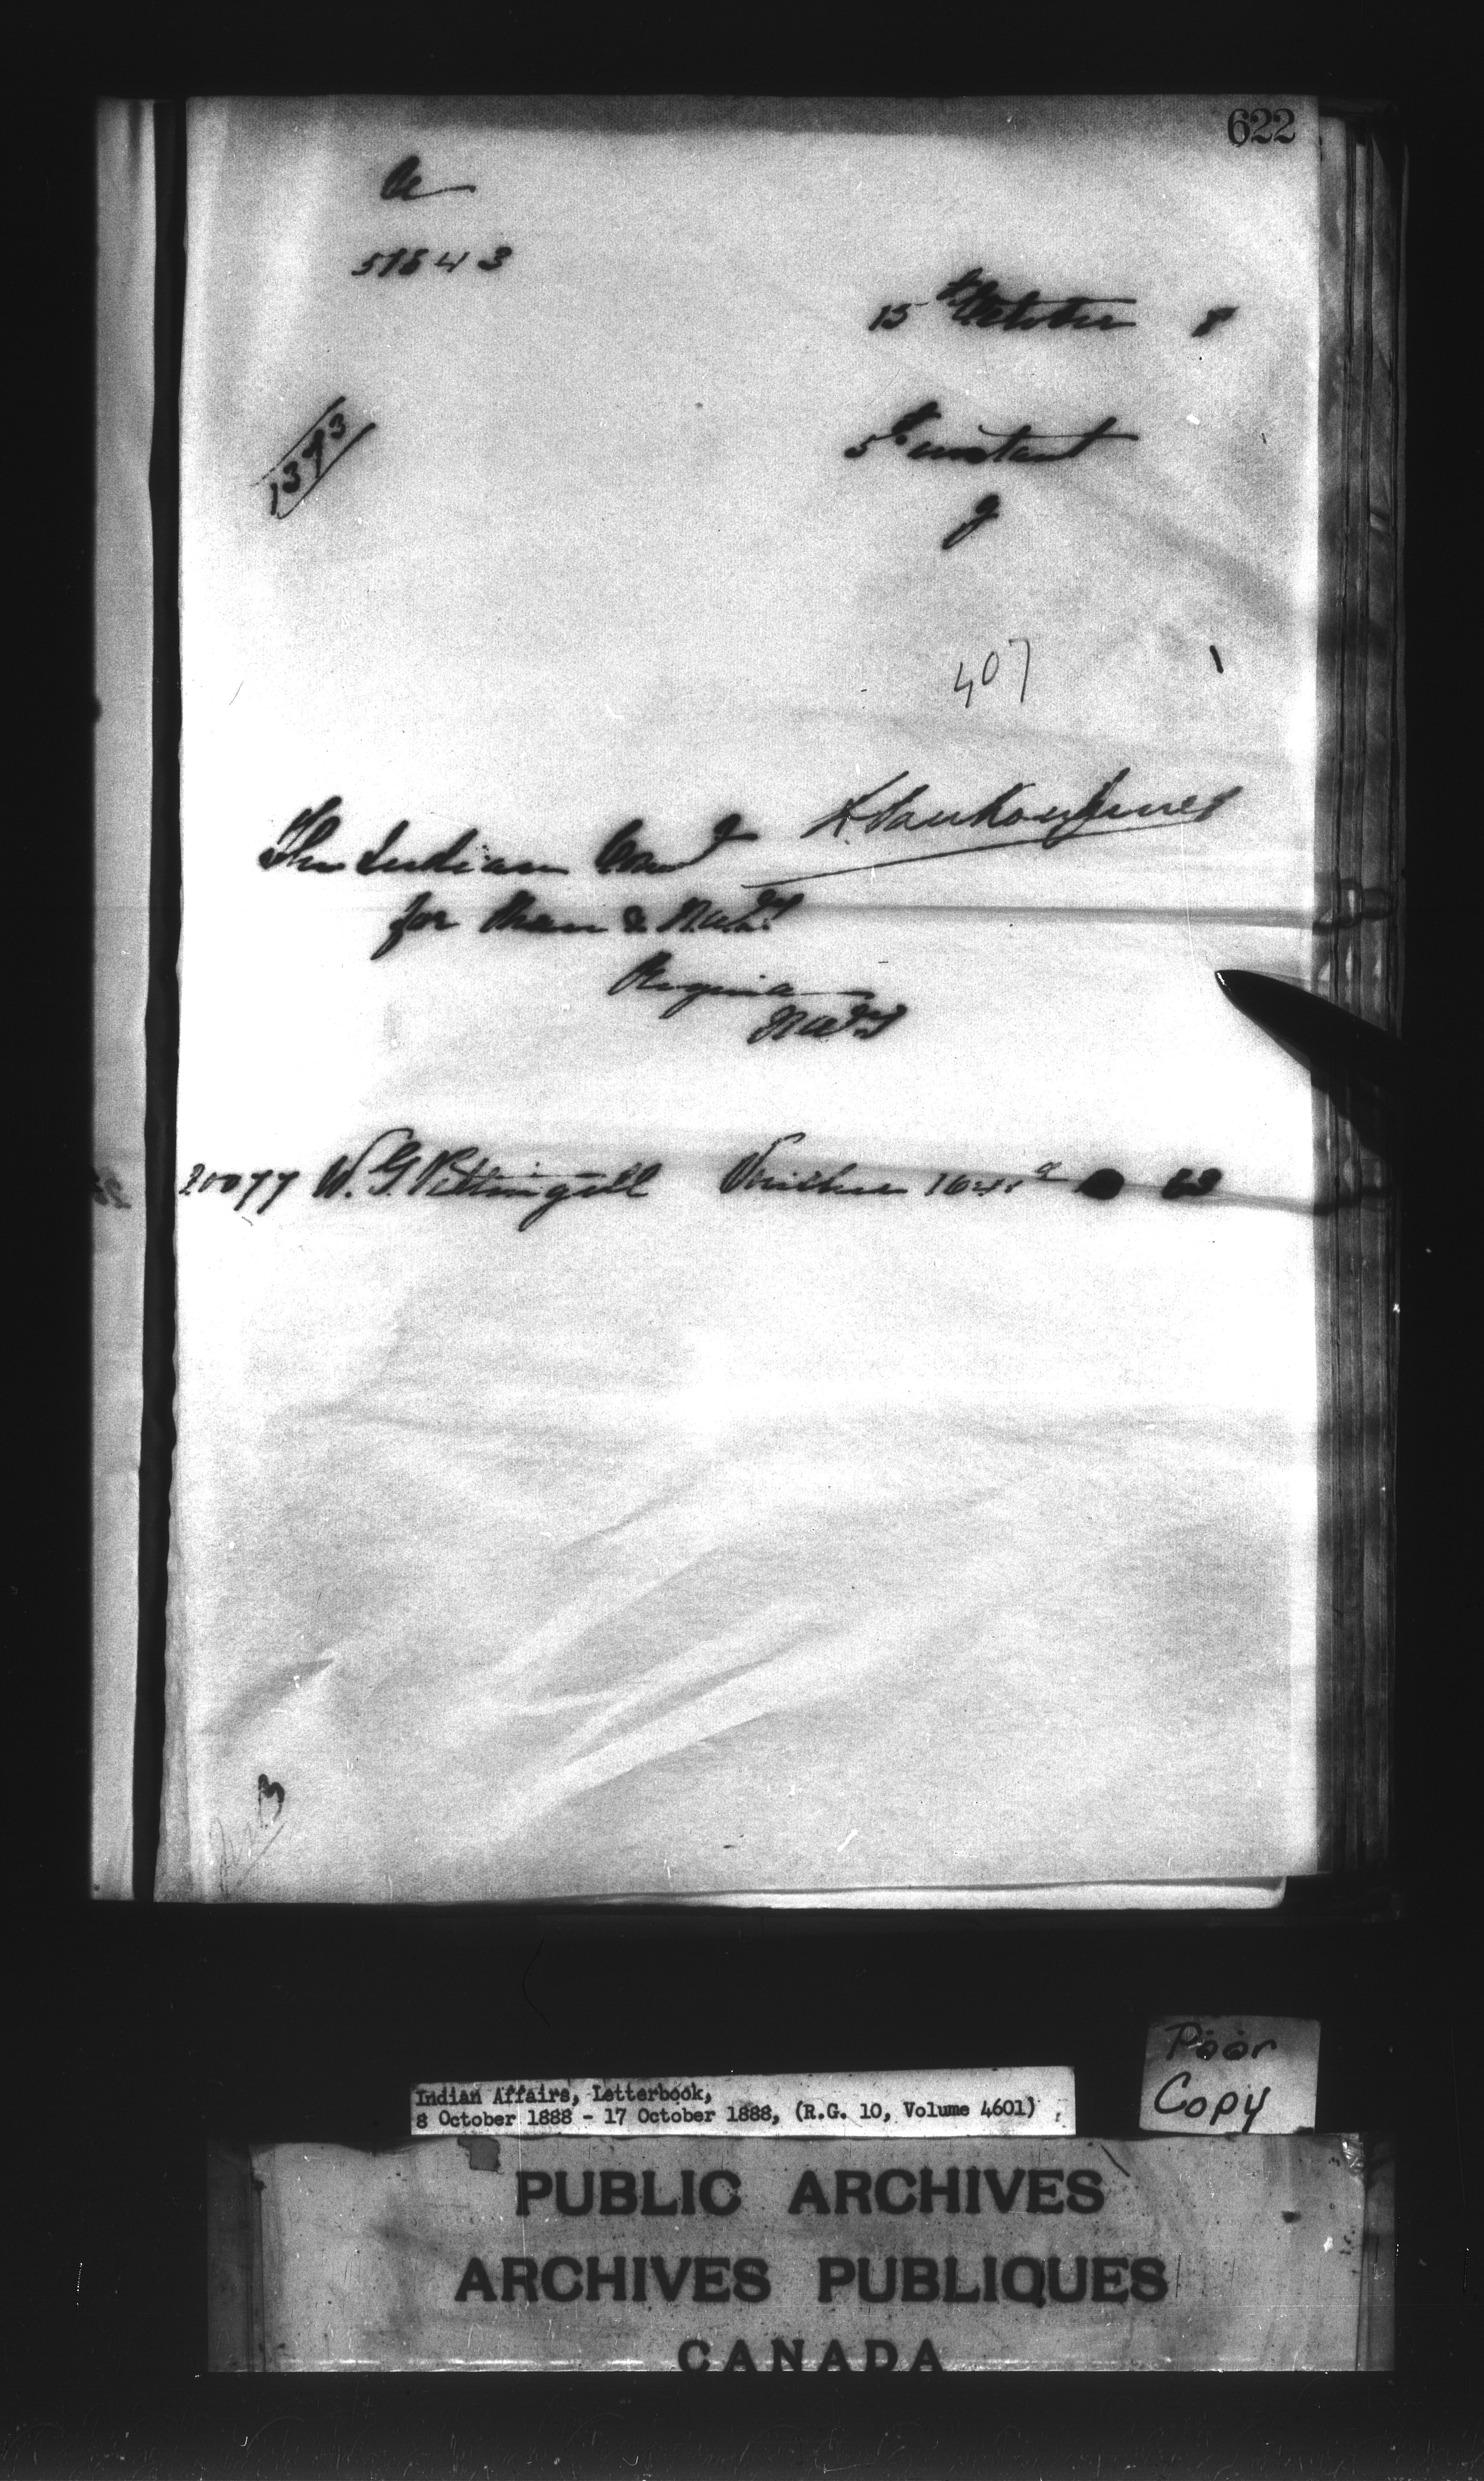 622
51543
15th October 8
1393
5th instant
g
407
L. Vankoughnet
The Indian Comr
for Man & N.W.T.
Regina
N.W.T.
20077 W. G. Pettingell Voucher
Indian Affairs, Letterbook,
8 October 1888 - 17 October 1888, (R.G. 10, Volume 4601)
Poor
Copy
PUBLIC ARCHIVES
ARCHIVES PUBLIQUES
CANADA